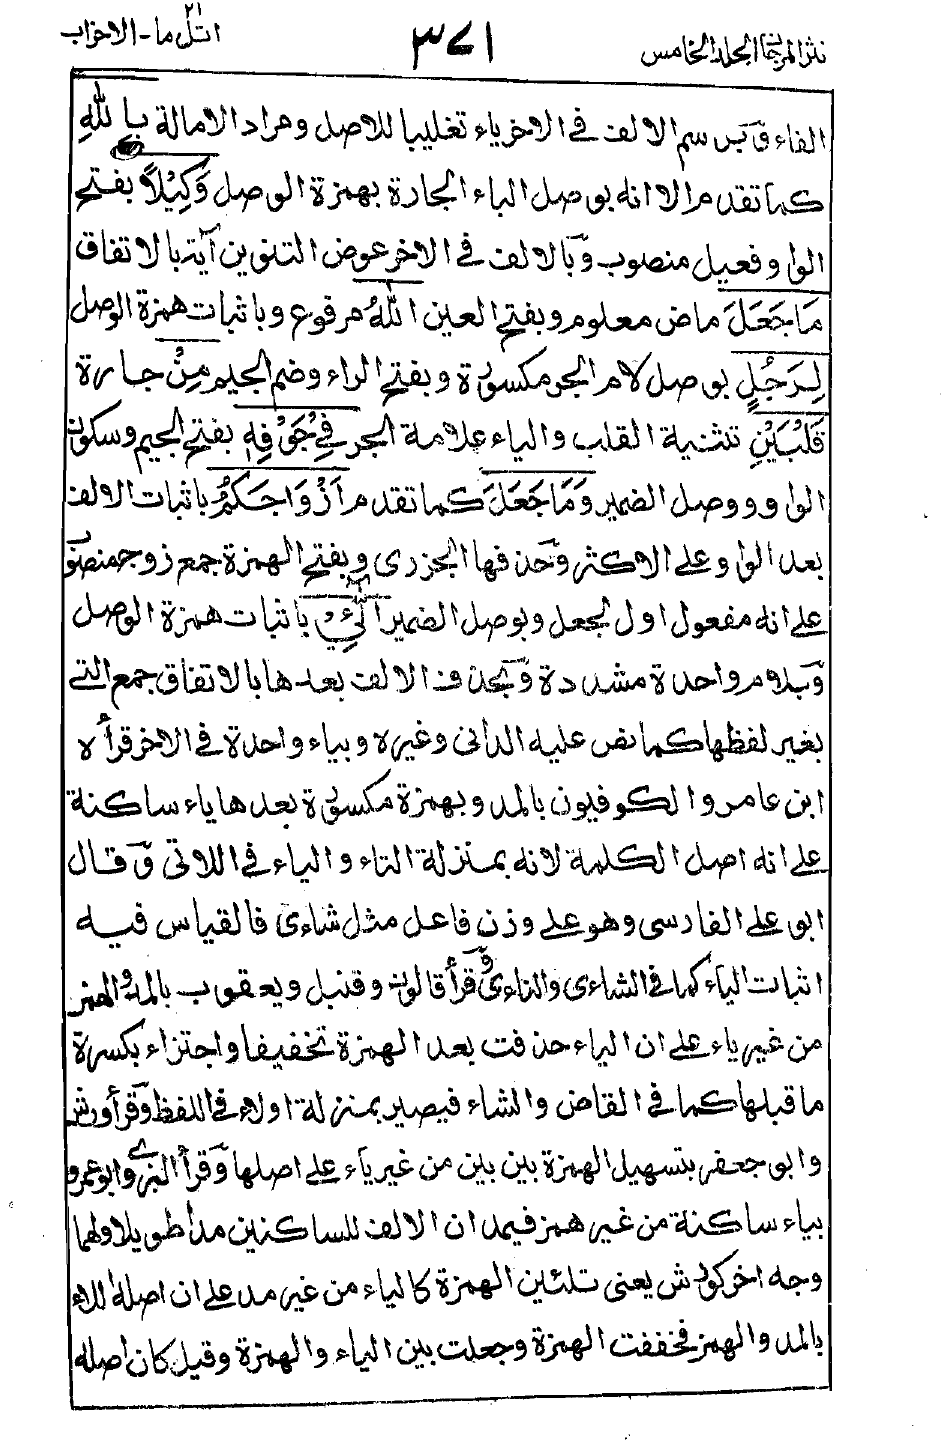 نثر المرجان المجلد الخامس ٣٧١ اتل ما ٢١ - الاحزاب
الفاء و برسم الالف في الاخر ياء تغليبا للاصل ومراد الامالة بِاللّٰهِ
كما تقدم الا انه بوصل الباء الجارة بهمزة الوصل وَكِيْلًا بفتح
الواو فعيل منصوب و بالالف في الاخر عوض التنوين آية بالاتفاق
مَا جَعَلَ ماض معلوم وبفتح العين اللّٰهُ مرفوع وباثبات همزة الوصل
لِرَجُلٍ بوصل لام الجر مكسورة وبفتح الراء وضم الجيم مِنْ جارة
قَلْبَيْنِ تثنية القلب والياء علامة الجر فِيْ جَوْفِهٖ بفتح الجيم وسكون
الواو ووصل الضمير وَمَا جَعَلَ كما تقدم اَزْوَاجَكُمُ باثبات الالف
بعد الواو على الاكثر وحذفها الجزرى وبفتح الهمزة جمع زوج منصوب
على انه مفعول اول لجعل وبوصل الضمير الّٰٓـئِيْ باثبات همزة الوصل
و بلام واحدة مشددة و بحذف الالف بعدها بالاتفاق جمع التي
بغير لفظها كما نص عليه الدانى وغيره وبياء واحدة في الاخر قرأه
ابن عامر والكوفيون بالمد وبهمزة مكسورة بعدها ياء ساكنة
على انه اصل الكلمة لانه بمنزلة التاء والياء في اللاتى و قال
ابو على الفارسى وهو على وزن فاعل مثل شاءى فالقياس فيه
اثبات الياء كما في الشاءى والناءى و قرأ قالون وقنبل ويعقوب بالمد والهمز
من غير ياء على ان الياء حذفت بعد الهمزة تخفيفا واجتزاء بكسرة
ما قبلها كما في القاض والشاء فيصير بمنزلة اولاء في اللفظ و قرأ ورش
وابو جعفر بتسهيل الهمزة بين بين من غير ياء على اصلها و قرأ البزى وابو عمرو
بياء ساكنة من غير همز فيمدان الالف للساكنين مدا طويلا ولهما
وجه اخر كورش يعنى تلئين الهمزة كالياء من غير مد على ان اصله اللاء
بالمد والهمز فخففت الهمزة وجعلت بين الياء والهمزة وقيل كان اصله